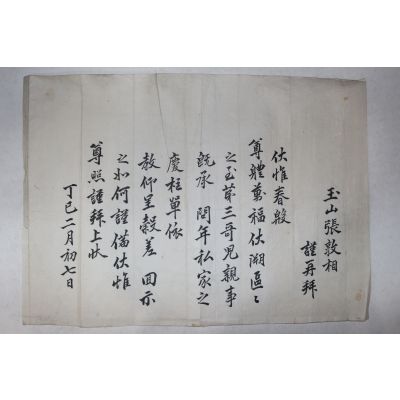 玉山張敦相
謹再拜
伏惟春殷
尊體萬福伏溯區〻
之至第三哥兒親事
旣承 閏年私家之
慶柱單依
敎仰呈穀差 回示
之如何謹備伏惟
尊照謹拜上狀
丁巳二月初七日